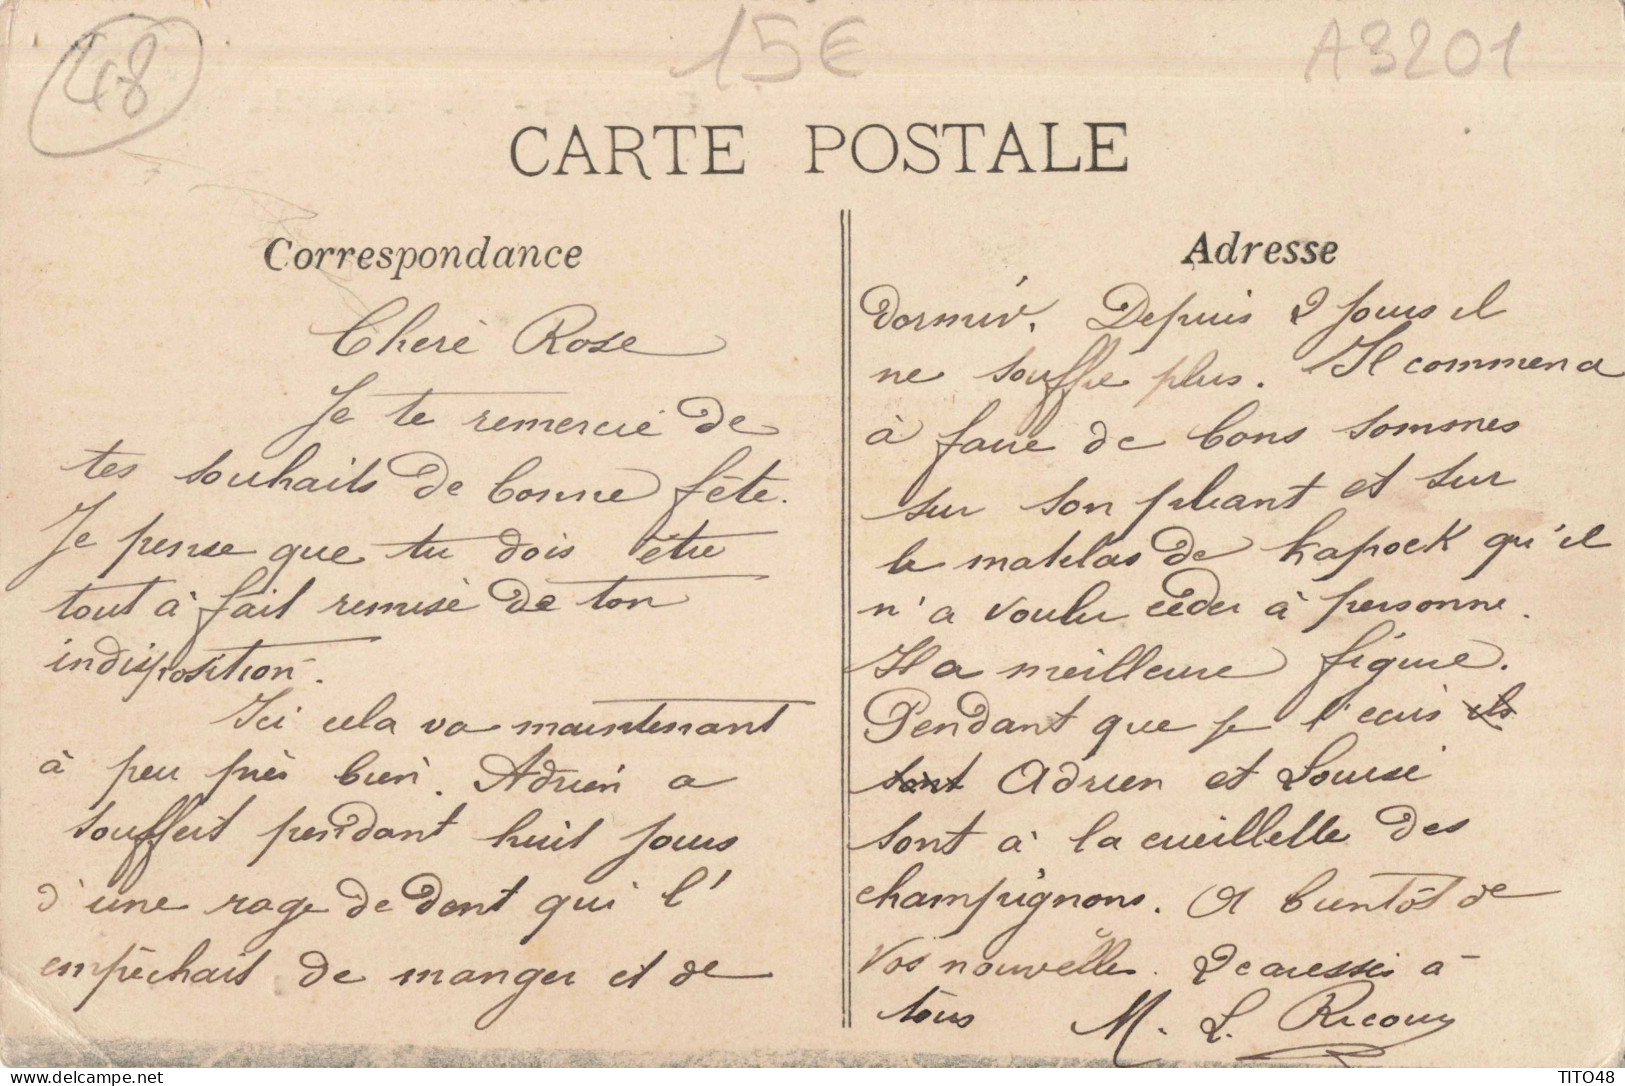 48
15€
A3201
CARTE POSTALE
Correspondance
Cheré Rose
Je te remercie de
tes souhaits de bonne fête.
Je pense que tu dois être
tout à fait remise de ton
indisposition.
Ici cela va maintenant
à peu près bien. Adrien a
souffert pendant huit jours
d'une rage de dent qui l'
empêchait de manger et de
Adresse
dormir. Depuis 2 jours il
ne souffre plus. Il commenca
à faire de bons sommes
sur son pliant et sur
le matelas de kapock qu'il
n'a voulu céder à personne.
Il a meilleure figure.
Pendant que je t'écris ils
sont Adrien et Louise
sont à la cueillelle des
champignons. A bientôt de
vos nouvelles. à
tous M. L.
TITO48